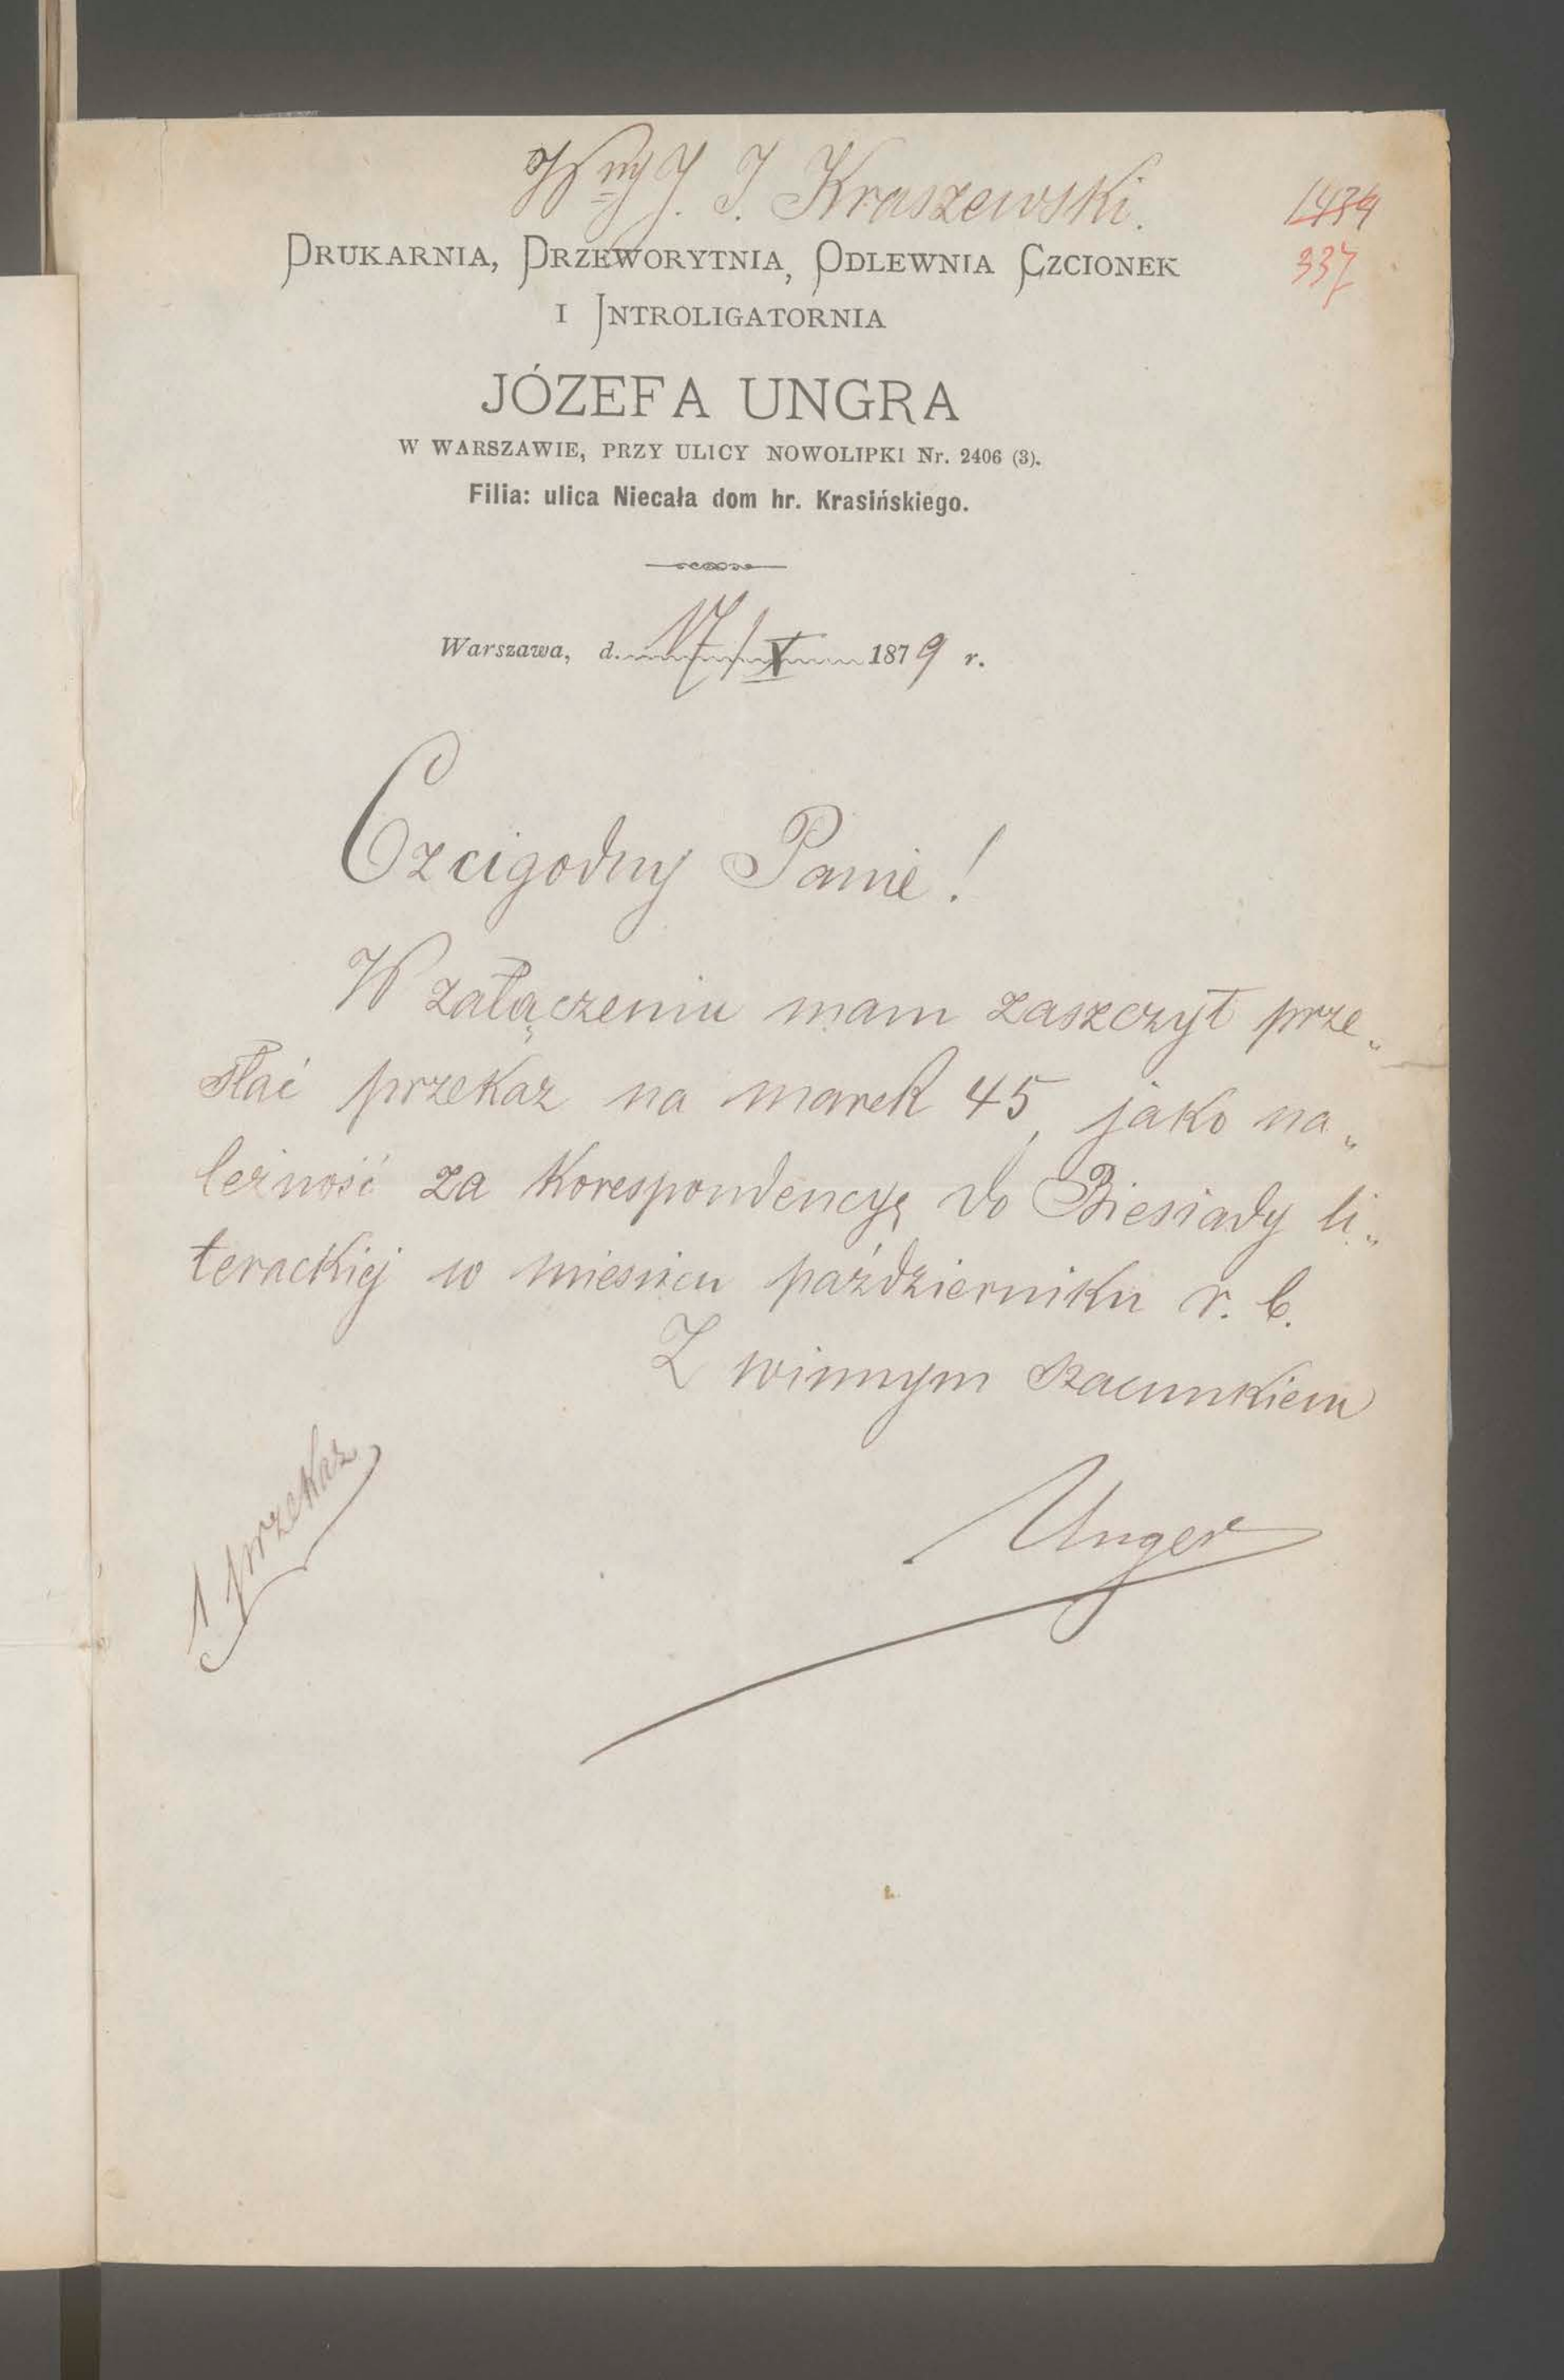 Wny J. I. Kraszewski.
1439
337
DRUKARNIA, DRZEWORYTNIA, ODLEWNIA CZCIONEK
I INTROLIGATORNIA
JÓZEFA UNGRA
W WARSZAWIE, PRZY ULICY NOWOLIPKI Nr. 2406 (3).
Filia: ulica Niecała dom hr. Krasińskiego.
Warszawa, d. 17/X 1879 r.
Czcigodny Panie!
W załączeniu mam zaszczyt prze„
słać przekaz na marek 45, jako na„
leżność za Korespondencyę do Biesiady li„
terackiej w miesiącu październiku r. b.
Z winnym szacunkiem
Unger
1 przekaz